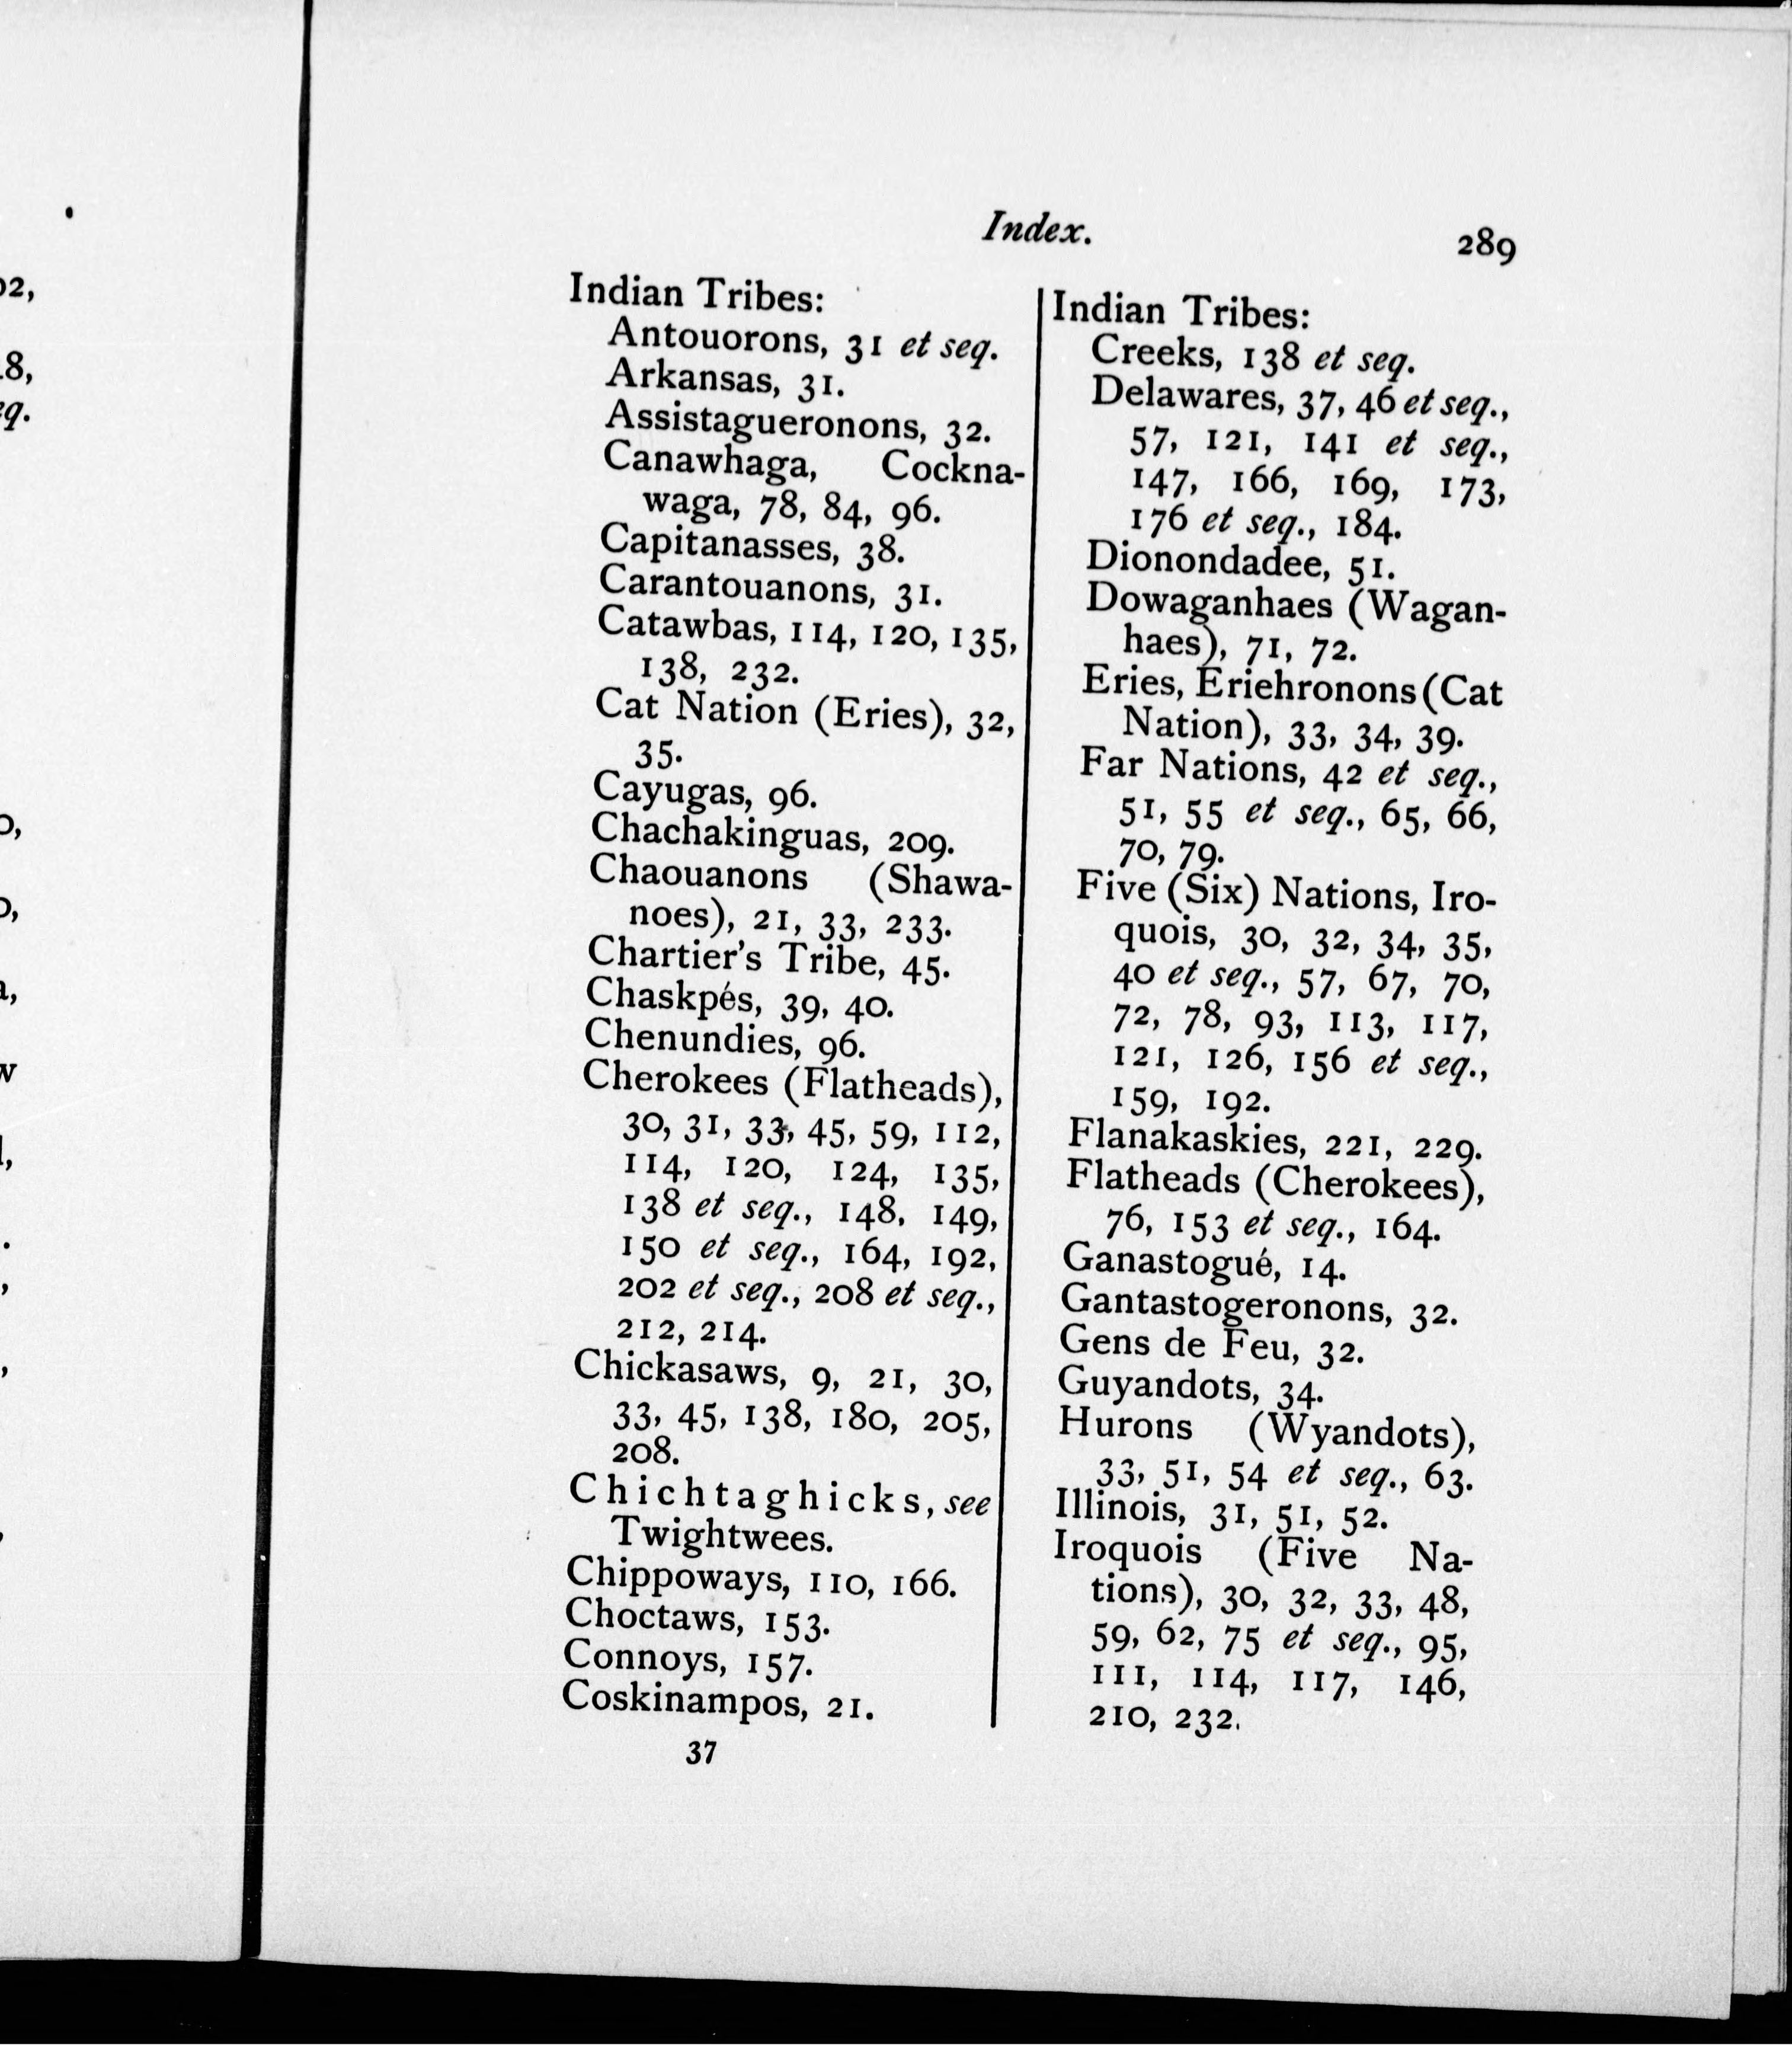 02,
18,
eq.
Index.
289
Indian Tribes:
Antouorons, 31 et seq.
Arkansas, 31.
Assistagueronons, 32.
Canawhaga, Cockna-
waga, 78, 84, 96.
Capitanasses, 38.
Carantouanons, 31.
Catawbas, 114, 120, 135,
138, 232.
Cat Nation (Eries), 32,
35.
Cayugas, 96.
Chachakinguas, 209.
Chaouanons (Shawa-
noes), 21, 33, 233.
Chartier's Tribe, 45.
Chaskpés, 39, 40.
Chenundies, 96.
Cherokees (Flatheads),
30, 31, 33, 45, 59, 112,
114, 120, 124, 135,
138 et seq., 148, 149,
150 et seq., 164, 192,
202 et seq., 208 et seq.,
212, 214.
Chickasaws, 9, 21, 30,
33, 45, 138, 180, 205,
208.
Chichtaghicks, see
Twightwees.
Chippoways, 110, 166.
Choctaws, 153.
Connoys, 157.
Coskinampos, 21.
37
Indian Tribes:
Creeks, 138 et seq.
Delawares, 37, 46 et seq.,
57, 121, 141 et seq.,
147, 166, 169, 173,
176 et seq., 184.
Dionondadee, 51.
Dowaganhaes (Wagan-
haes), 71, 72.
Eries, Eriehronons (Cat
Nation), 33, 34, 39.
Far Nations, 42 et seq.,
51, 55 et seq., 65, 66,
70, 79.
Five (Six) Nations, Iro-
quois, 30, 32, 34, 35,
40 et seq., 57, 67, 70,
72, 78, 93, 113, 117,
121, 126, 156 et seq.,
159, 192.
Flanakaskies, 221, 229.
Flatheads (Cherokees),
76, 153 et seq., 164.
Ganastogué, 14.
Gantastogeronons, 32.
Gens de Feu, 32.
Guyandots, 34.
Hurons (Wyandots),
33, 51, 54 et seq., 63.
Illinois, 31, 51, 52.
Iroquois (Five Na-
tions), 30, 32, 33, 48,
59, 62, 75 et seq., 95,
111, 114, 117, 146,
210, 232.